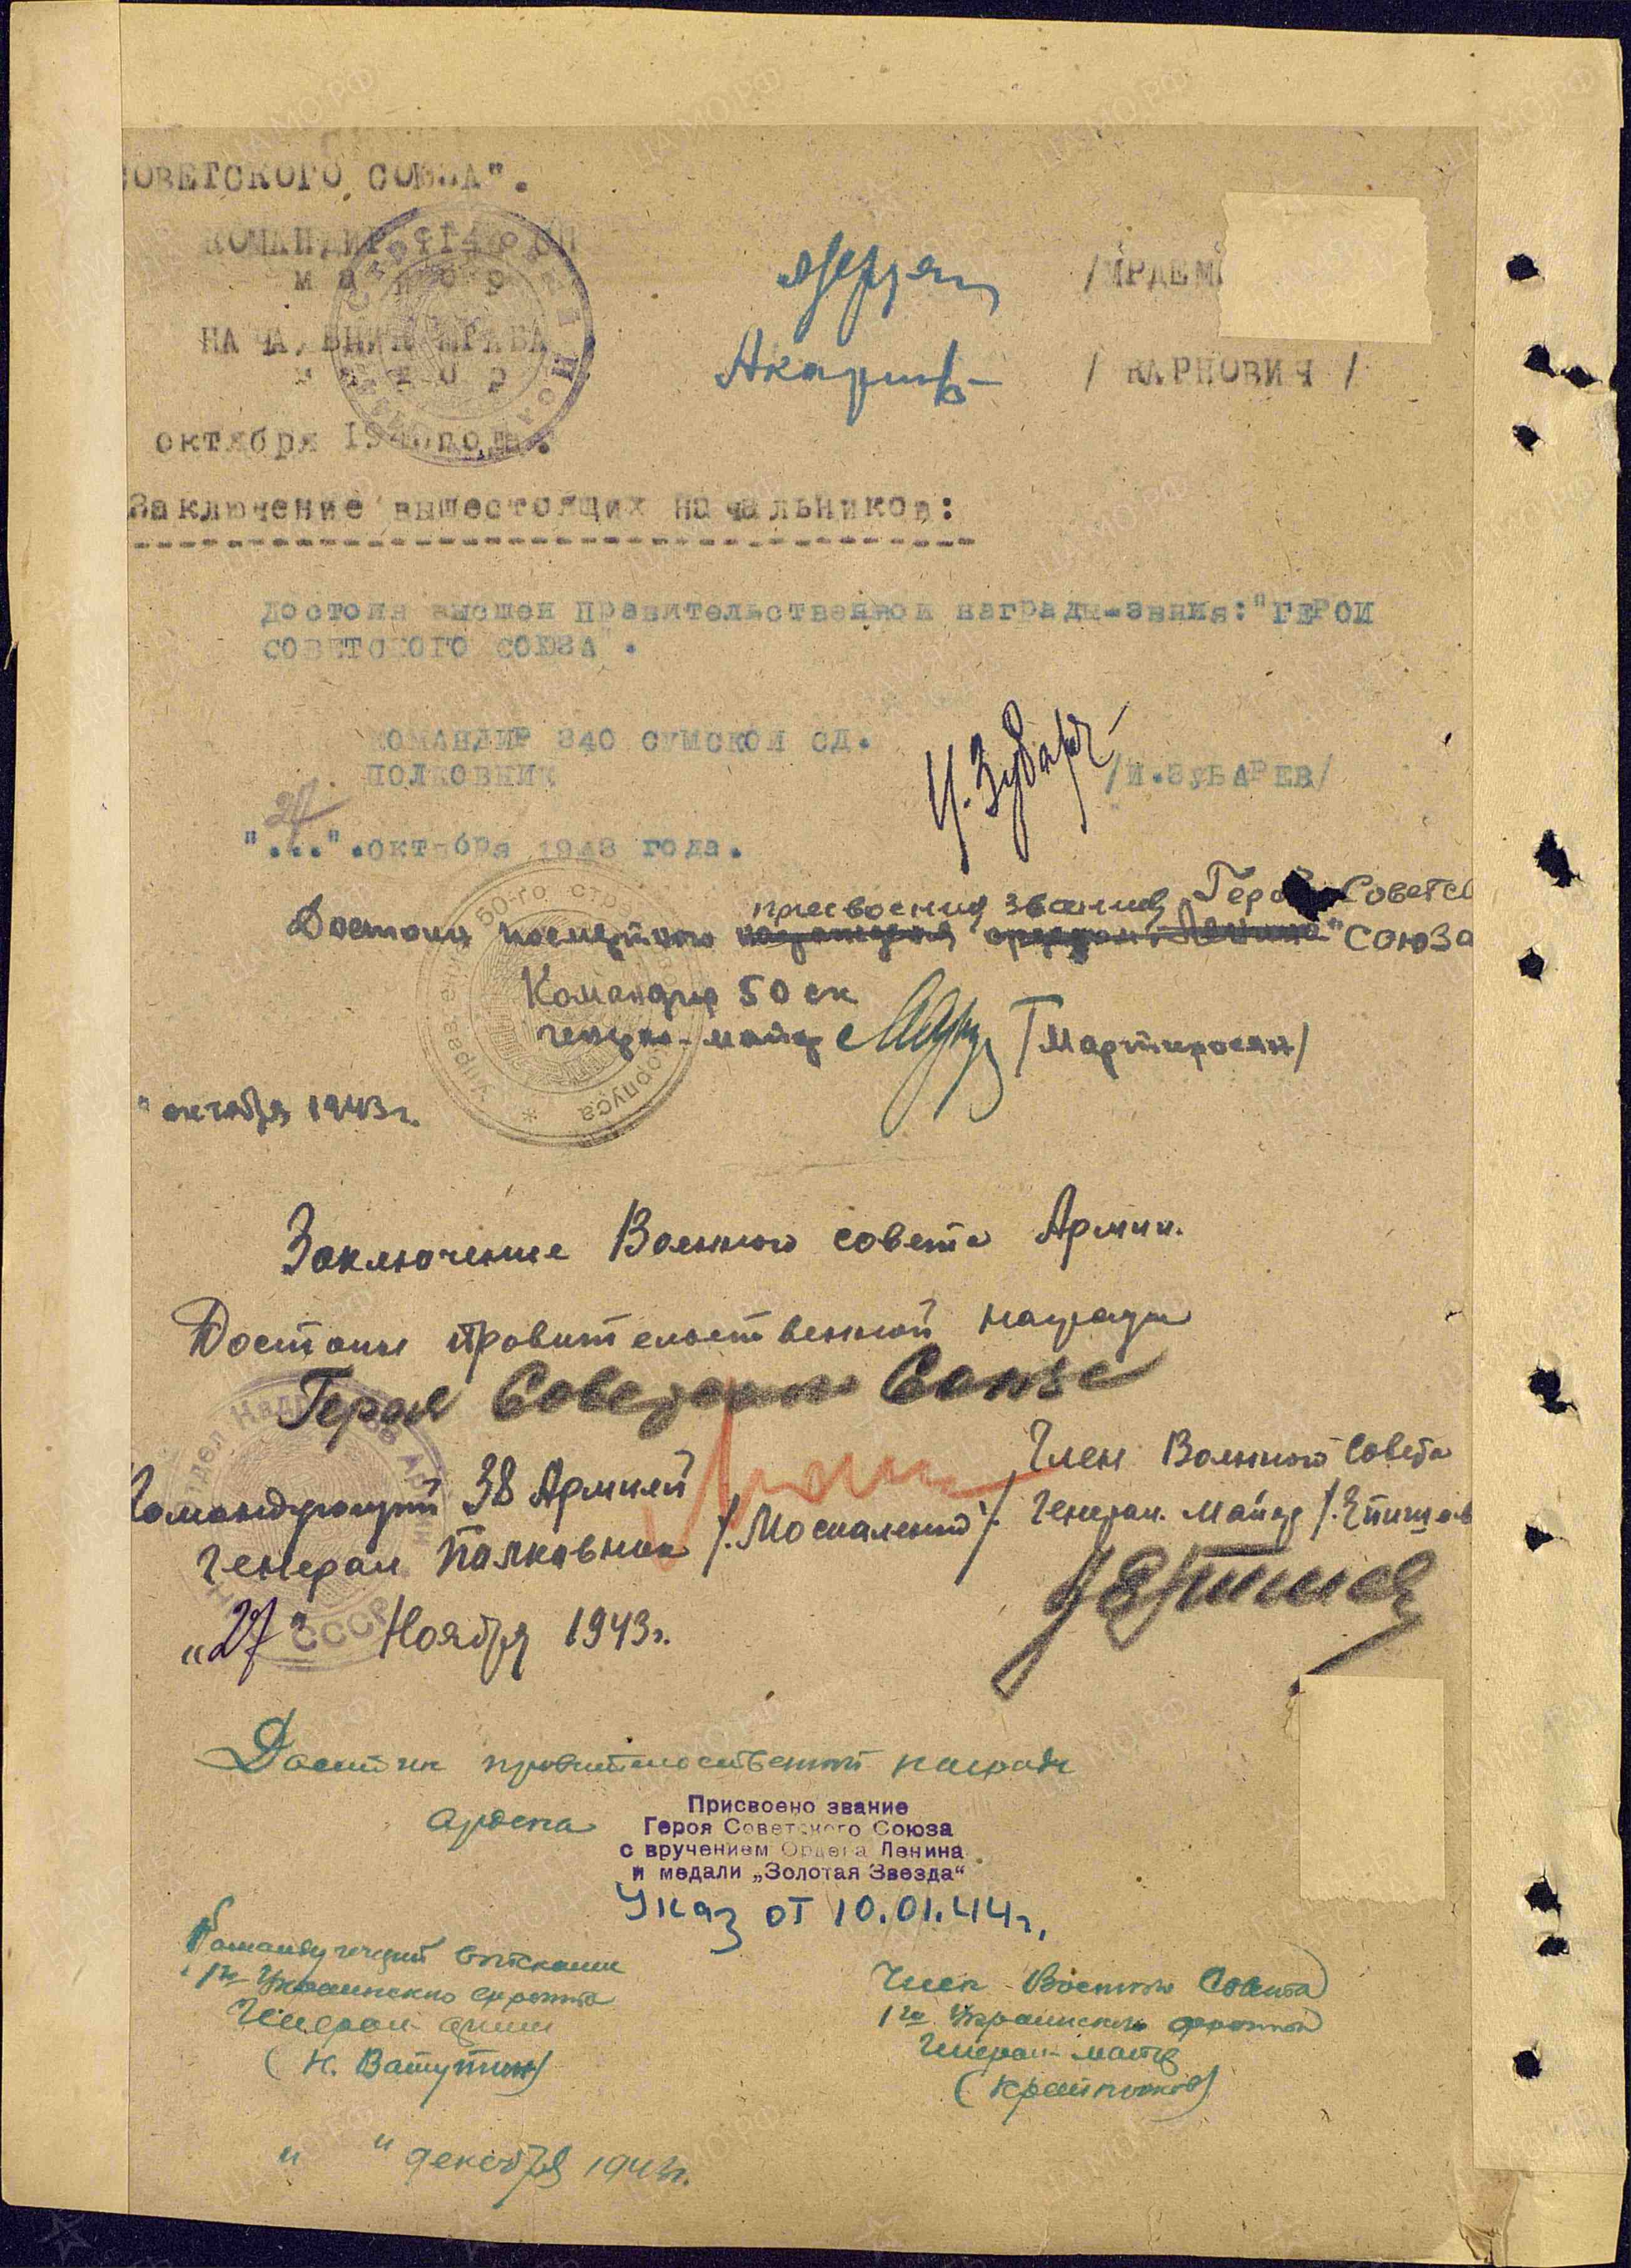 СОВЕТСКОГО СОЮЗА".
КОМАНДИР СП
майор /ИРДЕМ
НАЧАЛЬНИК ШТАБА
майор / КАРПОВИЧ /
октября 194 года.
Заключение вышестоящих начальников:
достоин высшей Правительственной награды-звния:"ГЕРОЙ
СОВЕТСКОГО СОЮЗА".
КОМАНДИР 340 СУМСКОЙ СД.
ПОЛКОВНИК И. Зубарев /И.ЗУБАРЕВ/
"24".октября 1943 года.
присвоения звания Героя Советс
Достоин посмертного награждения орденом "Ленина" Союза
Командир 50 ск
генерал-майор /Мартиросян/
" октября 1943 г.
Управление 50-го стр корпуса
Заключение Военного совета Армии.
Достоин правительственной награды
Героя Советского Союза
Командующий 38 Армией
Генерал Полковник /.Москаленко/.
Член Военного Совета
Генерал. Майор /.Епишев
"27" Ноября 1943г.
СССР
Достоин правительственной награды
ордена
Присвоено звание
Героя Советского Союза
с вручением Ордена Ленина
и медали „Золотая Звезда“
Указ от 10.01.44г.
Командующий войсками
1го Украинского фронта
Генерал армии
(Н. Ватутин)
Член Военного Совета
1го Украинского фронта
Генерал-майор
(Крайнюков)
" " декабря 1943г.
ЦАМО.РФ